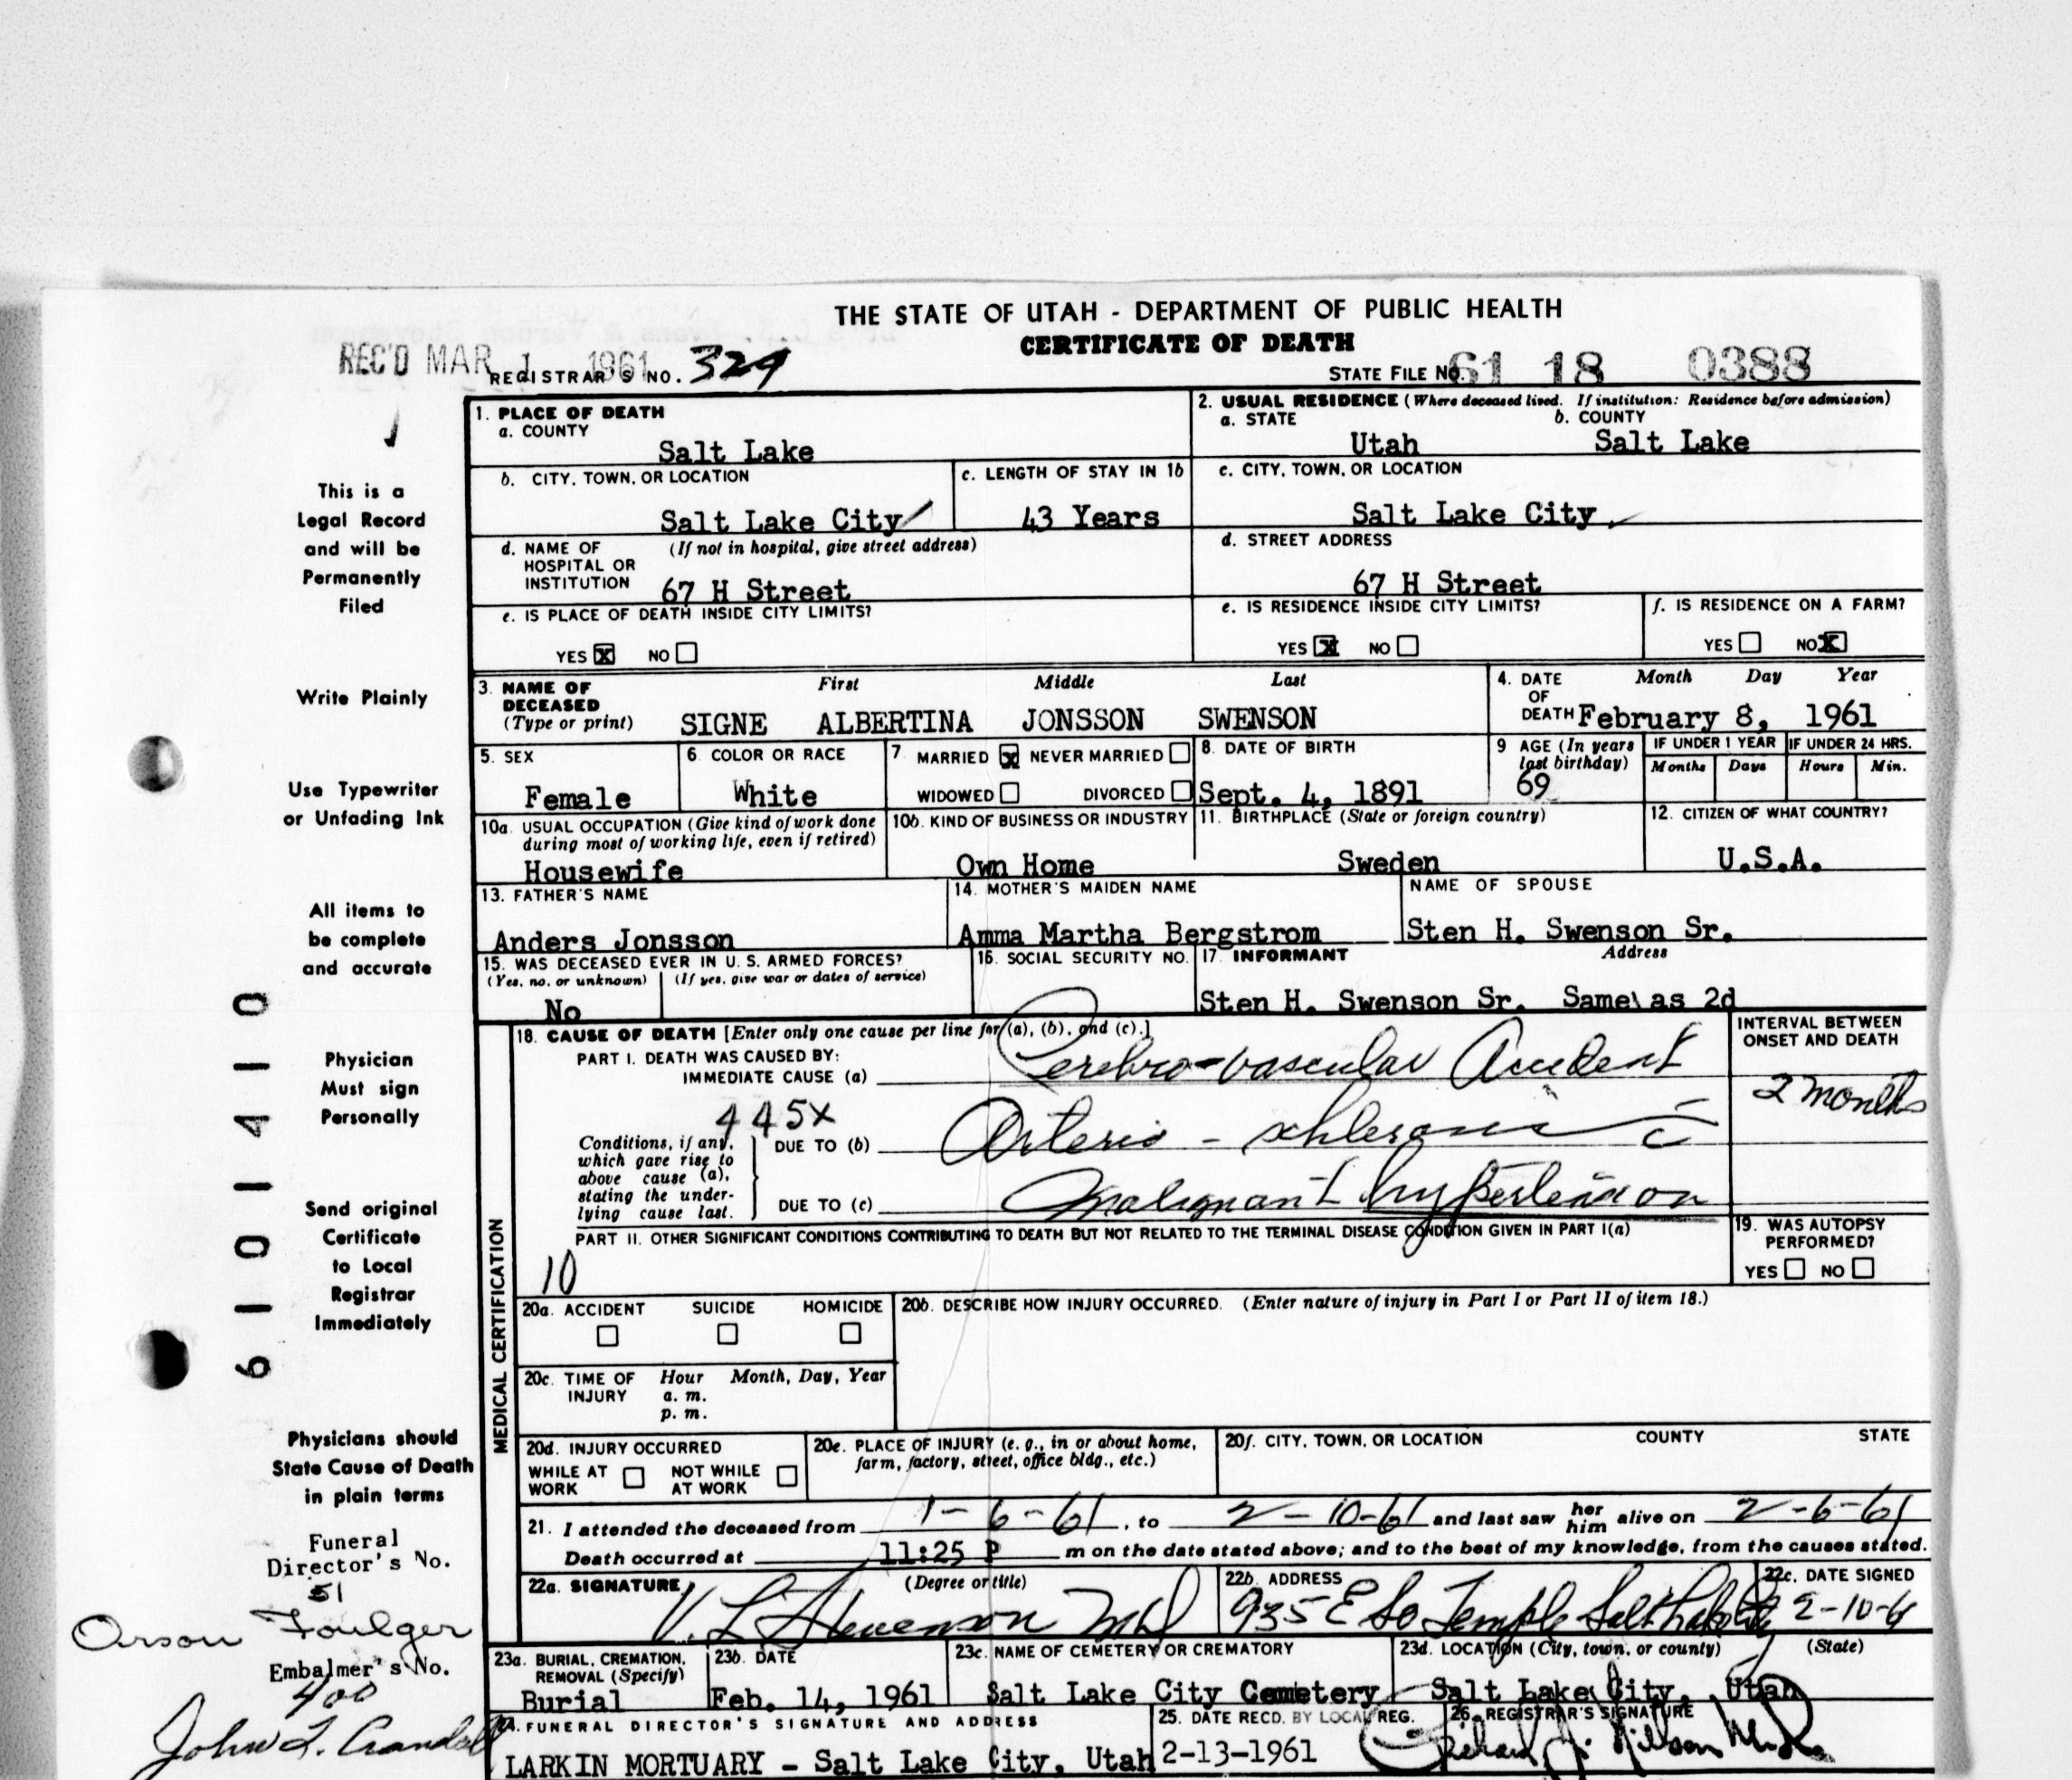 THE STATE OF UTAH - DEPARTMENT OF PUBLIC HEALTH
CERTIFICATE OF DEATH
REC'D MAR 1 1961
REGISTRAR'S NO. 329
STATE FILE NO. 61 18 0388
1. PLACE OF DEATH
a. COUNTY
Salt Lake
2. USUAL RESIDENCE (Where deceased lived. If institution: Residence before admission)
a. STATE b. COUNTY
Utah Salt Lake
b. CITY, TOWN, OR LOCATION
Salt Lake City
c. LENGTH OF STAY IN 1b
43 Years
c. CITY, TOWN, OR LOCATION
Salt Lake City
d. NAME OF HOSPITAL OR INSTITUTION (If not in hospital, give street address)
67 H Street
d. STREET ADDRESS
67 H Street
e. IS PLACE OF DEATH INSIDE CITY LIMITS?
YES X NO
e. IS RESIDENCE INSIDE CITY LIMITS?
YES X NO
f. IS RESIDENCE ON A FARM?
YES NO X
3. NAME OF DECEASED (Type or print)
First Middle Last
SIGNE ALBERTINA JONSSON SWENSON
4. DATE OF DEATH Month Day Year
February 8, 1961
5. SEX
Female
6. COLOR OR RACE
White
7. MARRIED X NEVER MARRIED
WIDOWED DIVORCED
8. DATE OF BIRTH
Sept. 4, 1891
9 AGE (In years last birthday)
69
IF UNDER 1 YEAR
Months Days
IF UNDER 24 HRS.
Hours Min.
10a. USUAL OCCUPATION (Give kind of work done during most of working life, even if retired)
Housewife
10b. KIND OF BUSINESS OR INDUSTRY
Own Home
11. BIRTHPLACE (State or foreign country)
Sweden
12. CITIZEN OF WHAT COUNTRY?
U.S.A.
13. FATHER'S NAME
Anders Jonsson
14. MOTHER'S MAIDEN NAME
Amma Martha Bergstrom
NAME OF SPOUSE
Sten H. Swenson Sr.
15. WAS DECEASED EVER IN U. S. ARMED FORCES?
(Yes, no, or unknown) (If yes, give war or dates of service)
No
16. SOCIAL SECURITY NO.
17. INFORMANT Address
Sten H. Swenson Sr. Same as 2d
MEDICAL CERTIFICATION
18. CAUSE OF DEATH [Enter only one cause per line for (a), (b), and (c).]
PART I. DEATH WAS CAUSED BY:
IMMEDIATE CAUSE (a) Cerebro-vascular Accident
INTERVAL BETWEEN ONSET AND DEATH
2 months
445X
Conditions, if any, which gave rise to above cause (a), stating the underlying cause last.
DUE TO (b) Arterio - schlerosis c̄
DUE TO (c) Malignant hypertension
PART II. OTHER SIGNIFICANT CONDITIONS CONTRIBUTING TO DEATH BUT NOT RELATED TO THE TERMINAL DISEASE CONDITION GIVEN IN PART I(a)
10
19. WAS AUTOPSY PERFORMED?
YES NO
20a. ACCIDENT SUICIDE HOMICIDE
20b. DESCRIBE HOW INJURY OCCURRED. (Enter nature of injury in Part I or Part II of item 18.)
20c. TIME OF INJURY Hour Month, Day, Year
a. m.
p. m.
20d. INJURY OCCURRED
WHILE AT WORK NOT WHILE AT WORK
20e. PLACE OF INJURY (e. g., in or about home, farm, factory, street, office bldg., etc.)
20f. CITY, TOWN, OR LOCATION COUNTY STATE
21. I attended the deceased from 1-6-61, to 2-10-61 and last saw her him alive on 2-6-61
Death occurred at 11:25 P m on the date stated above; and to the best of my knowledge, from the causes stated.
22a. SIGNATURE (Degree or title)
V. L. Stevenson MD
22b. ADDRESS
935 E So Temple Salt Lake City
22c. DATE SIGNED
2-10-61
23a. BURIAL, CREMATION, REMOVAL (Specify)
Burial
23b. DATE
Feb. 14, 1961
23c. NAME OF CEMETERY OR CREMATORY
Salt Lake City Cemetery
23d. LOCATION (City, town, or county) (State)
Salt Lake City, Utah
24. FUNERAL DIRECTOR'S SIGNATURE AND ADDRESS
LARKIN MORTUARY - Salt Lake City, Utah
25. DATE RECD. BY LOCAL REG.
2-13-1961
26. REGISTRAR'S SIGNATURE
This is a
Legal Record
and will be
Permanently
Filed
Write Plainly
Use Typewriter
or Unfading Ink
All items to
be complete
and accurate
Physician
Must sign
Personally
Send original
Certificate
to Local
Registrar
Immediately
Physicians should
State Cause of Death
in plain terms
Funeral
Director's No.
51
Orson Foulger
Embalmer's No.
400
John L. Crandall
6101410